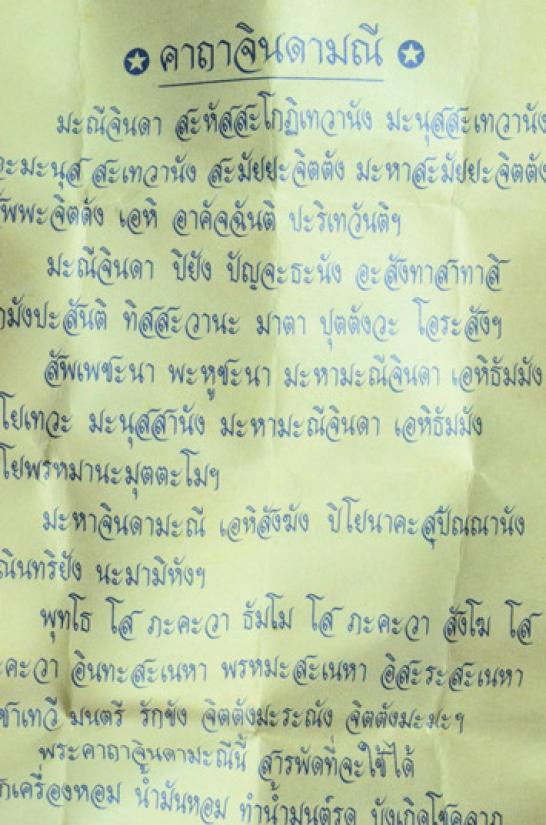 คาถาจินดามณี
มะณีจินดา สะหัสสะโกฏิเทวานัง มะนุสสะเทวานัง
อะมะนุส สะเทวานัง สะมัยยะจิตตัง มะหาสะมัยยะจิตตัง
สัพพะจิตตัง เอหิ อาคัจฉันติ ปะริเทวันติฯ
มะณีจินดา ปิยัง ปัญจะธะนัง อะสังทาสาทาสิ
ามังปะสันติ ทิสสะวานะ มาตา ปุตตังวะ โอระสังฯ
สัพเพชะนา พะหูชะนา มะหามะณีจินดา เอหิธัมมัง
โยเทวะ มะนุสสานัง มะหามะณีจินดา เอหิธัมมัง
โยพรหมานะมุตตะโมฯ
มะหาจินดามะณี เอหิสังฆัง ปิโยนาคะสุปัณณานัง
ณินทริยัง นะมามิหังฯ
พุทโธ โส ภะคะวา ธัมโม โส ภะคะวา สังโฆ โส
ะคะวา อินทะสะเนหา พรหมะสะเนหา อิสะระสะเนหา
ชาเทวี มนตรี รักขัง จิตตังมะระณัง จิตตังมะมะฯ
พระคาถาจินดามะณีนี้ สารพัดที่จะใช้ได้
กเครื่องหอม น้ำมันหอม ทำน้ำมนต์รด บังเกิดโชคลาภ